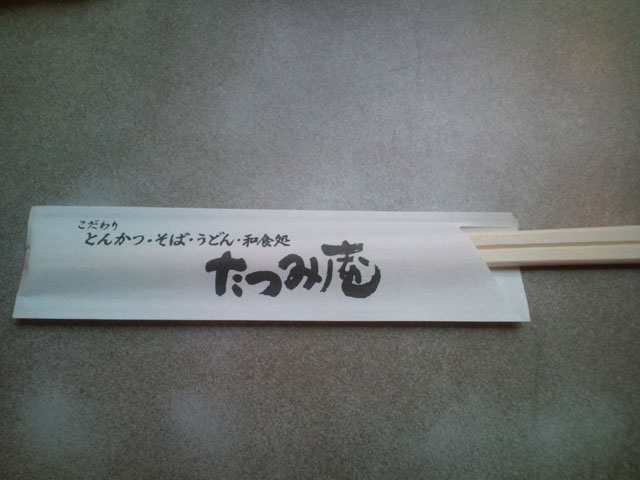 こだわり
とんかつ・そば・うどん・和食処
たつみ庵